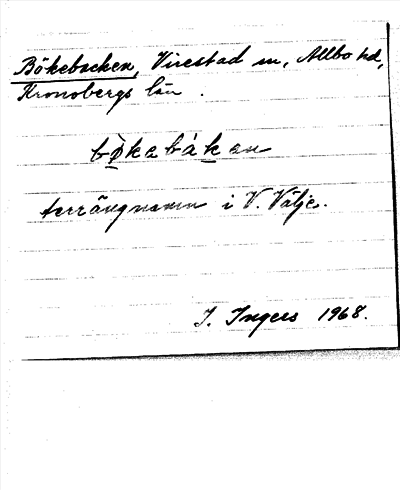 Bökebacken, Virestad sn, Allbo hd,
Kronobergs län.
bø̀kabàkan
terrängnamn i V. Välje.
I. Ingers 1968.